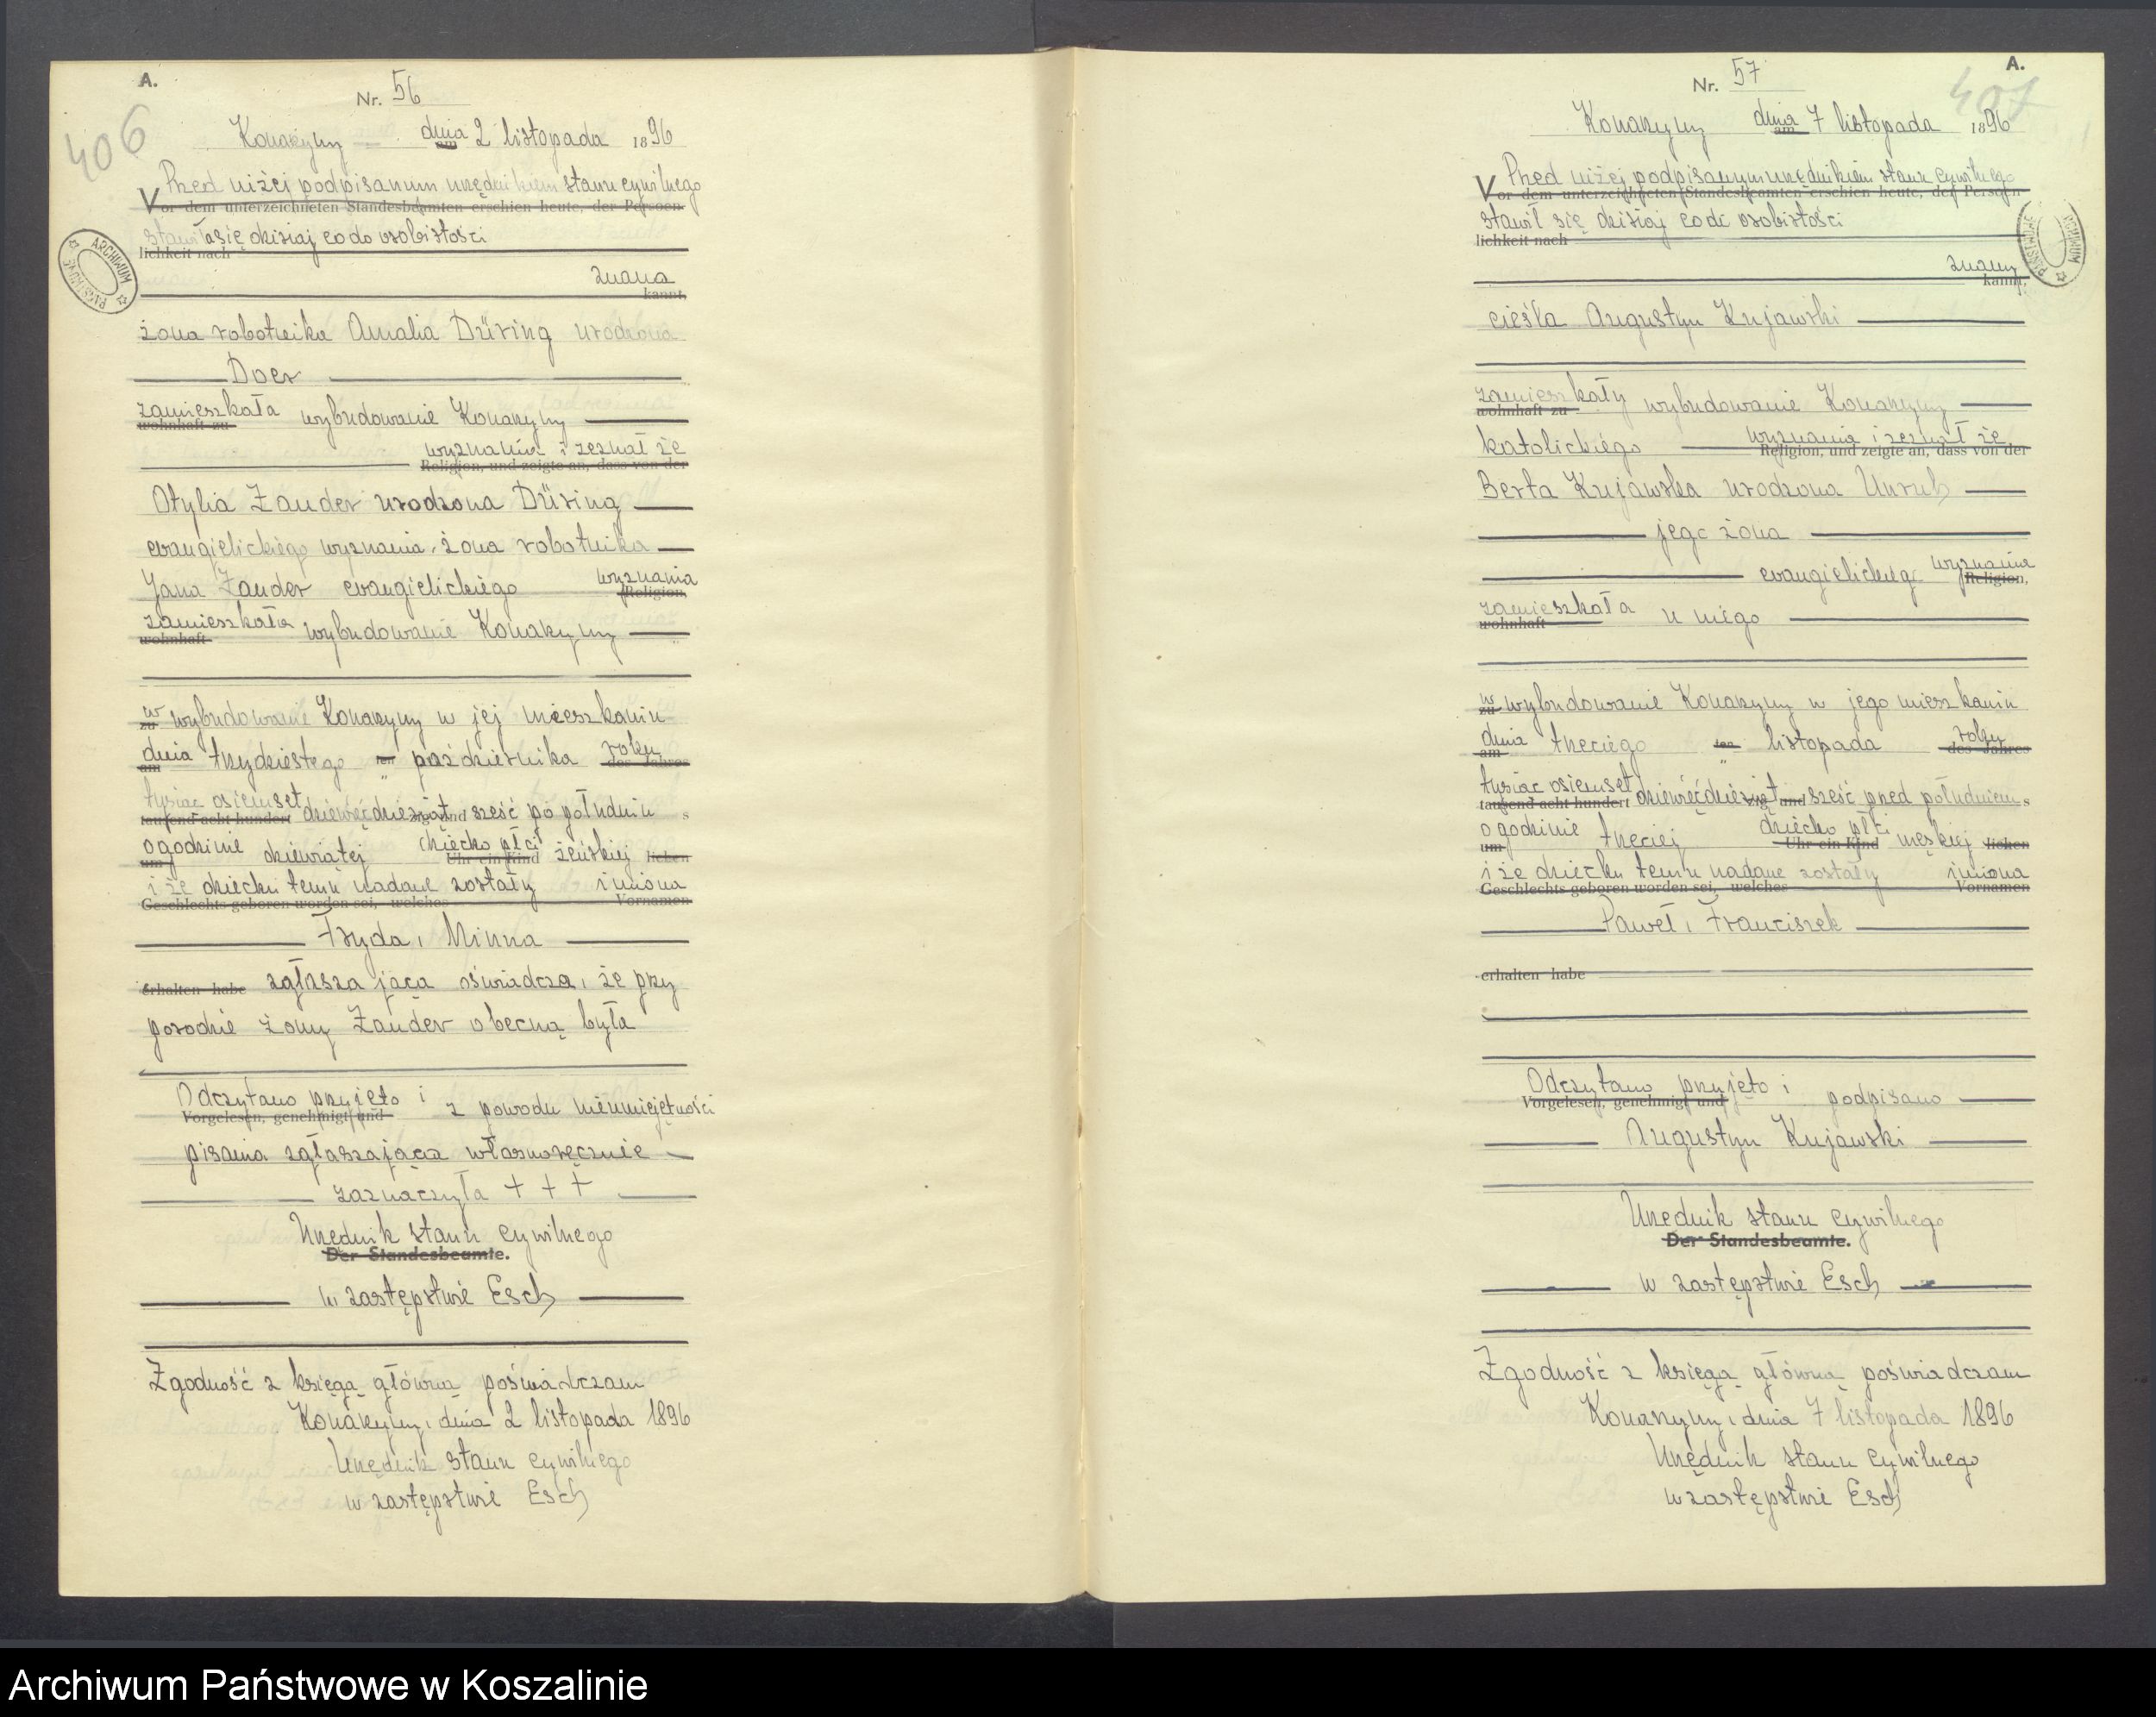 A.
Nr. 56
406
Konarzyny dnia am 2 listopada 1896
Przed niżej podpisanym urzędnikiem stanu cywilnego
Vor dem unterzeichneten Standesbeamten erschien heute, der Person
stawiła się dzisiaj co do osobistości
lichkeit nach
znana
kannt,
żona robotnika Amalia Düring urodzona
Doer
zamieszkała wybudowanie Konarzyny
wohnhaft zu
wyznania i zeznał że
Religion, und zeigte an, dass von der
Otylia Zander urodzona Düring
ewangielickiego wyznania, żona robotnika
Jana Zander ewangielickiego wyznania
Religion,
zamieszkała wybudowanie Konarzyny
wohnhaft
w zu wybudowanie Konarzyny w jej mieszkaniu
dnia am trzydziestego ten października roku des Jahres
tysiąc osiemset dziewięćdziesiąt sześć po południu s
tausend acht hundert zig und
o godzinie dziewiątej dziecko płci żeńskiej lichen
um Uhr ein Kind
i że dziecku temu nadane zostały imiona
Geschlechts geboren worden sei, welches Vornamen
Fryda, Minna
erhalten habe zgłaszająca oświadcza, że przy
porodzie żony Zander obecną była
Odczytano przyjęto i z powodu nieumiejętności
Vorgelesen, genehmigt und
pisania zgłaszająca własnoręcznie
zaznaczyła + + +
Urzędnik stanu cywilnego
Der Standesbeamte.
w zastępstwie Esch
Zgodność z księgą główną poświadczam
Konarzyny, dnia 2 listopada 1896
Urzędnik stanu cywilnego
w zastępstwie Esch
ARCHIWUM PAŃSTWOWE
A.
Nr. 57
407
Konarzyny dnia am 7 listopada 1896
Przed niżej podpisanym urzędnikiem stanu cywilnego
Vor dem unterzeichneten Standesbeamten erschien heute, der Person
stawił się dzisiaj co do osobistości
lichkeit nach
znany
kannt,
cieśla Augustyn Kujawski
zamieszkały wybudowanie Konarzyny
wohnhaft zu
katolickiego wyznania i zeznał że
Religion, und zeigte an, dass von der
Berta Kujawska urodzona Unruh
jego żona
ewangielickiego wyznania
Religion,
zamieszkała u niego
wohnhaft
w zu wybudowanie Konarzyny w jego mieszkaniu
dnia am trzeciego ten listopada roku des Jahres
tysiąc osiemset dziewięćdziesiąt sześć przed południem s
tausend acht hundert zig und
o godzinie trzeciej dziecko płci męskiej lichen
um Uhr ein Kind
i że dziecku temu nadane zostały imiona
Geschlechts geboren worden sei, welches Vornamen
Paweł, Franciszek
erhalten habe
Odczytano przyjęto i podpisano
Vorgelesen, genehmigt und
Augustyn Kujawski
Urzędnik stanu cywilnego
Der Standesbeamte.
w zastępstwie Esch
Zgodność z księgą główną poświadczam
Konarzyny, dnia 7 listopada 1896
Urzędnik stanu cywilnego
w zastępstwie Esch
ARCHIWUM PAŃSTWOWE
Archiwum Państwowe w Koszalinie